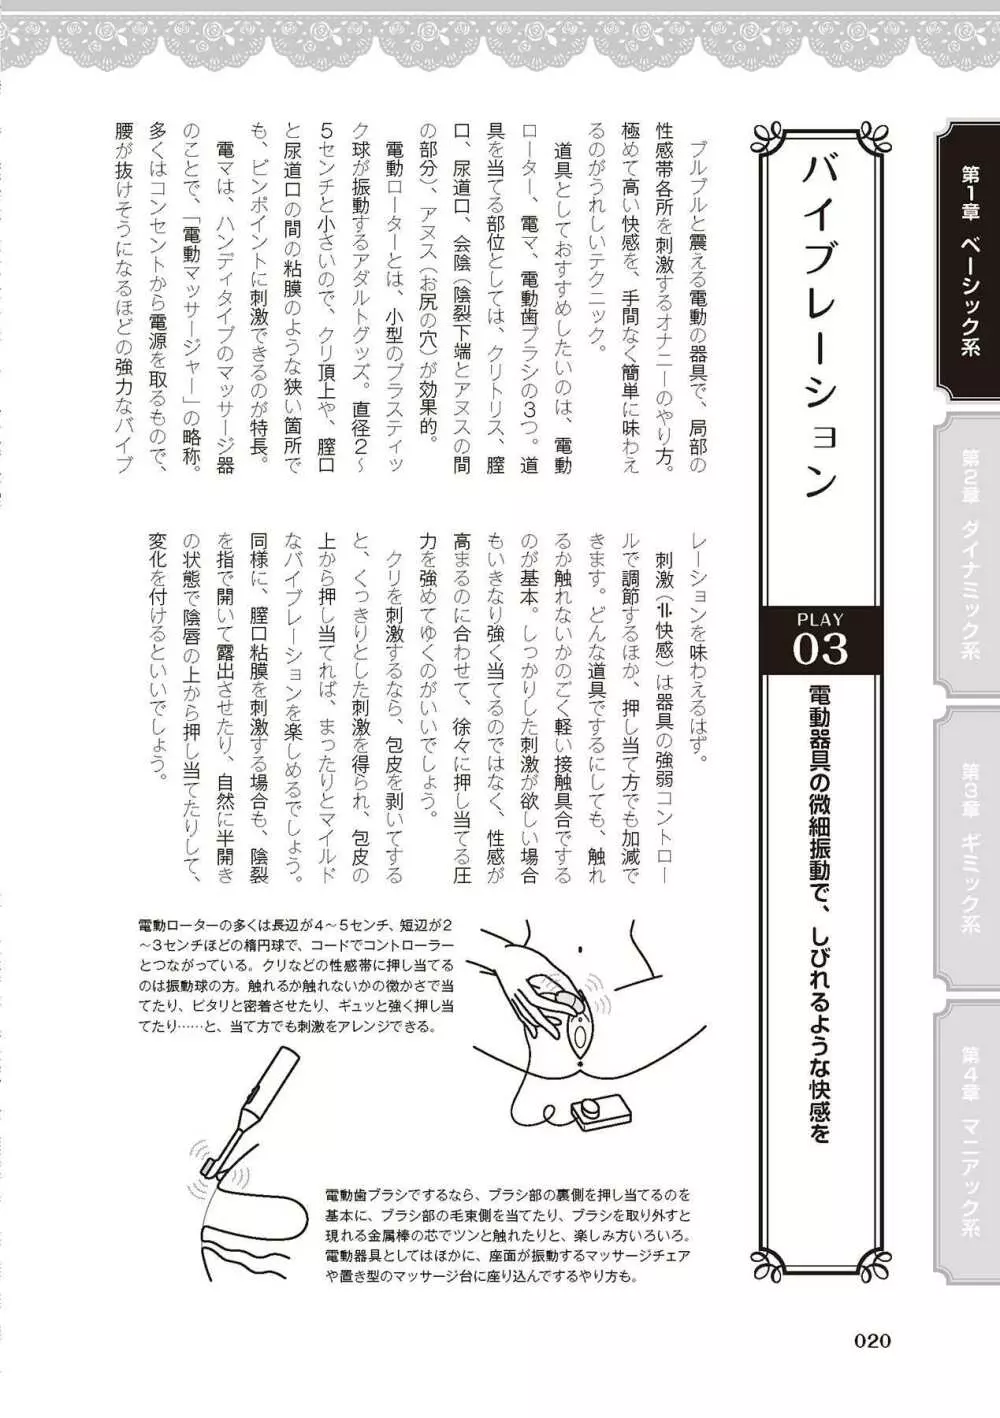 第1章 ベーシック系
第2章 ダイナミック系
第3章 ギミック系
第4章 マニアック系
バイブレーション
PLAY
03
電動器具の微細振動で、しびれるような快感を
ブルブルと震える電動の器具で、局部の
性感帯各所を刺激するオナニーのやり方。
極めて高い快感を、手間なく簡単に味わえ
るのがうれしいテクニック。
道具としておすすめしたいのは、電動
ローター、電マ、電動歯ブラシの3つ。道
具を当てる部位としては、クリトリス、膣
口、尿道口、会陰（陰裂下端とアヌスの間
の部分）、アヌス（お尻の穴）が効果的。
電動ローターとは、小型のプラスティッ
ク球が振動するアダルトグッズ。直径2〜
5センチと小さいので、クリ頂上や、膣口
と尿道口の間の粘膜のような狭い箇所で
も、ピンポイントに刺激できるのが特長。
電マは、ハンディタイプのマッサージ器
のことで、「電動マッサージャー」の略称。
多くはコンセントから電源を取るもので、
腰が抜けそうになるほどの強力なバイブ
レーションを味わえるはず。
刺激（≒快感）は器具の強弱コントロー
ルで調節するほか、押し当て方でも加減で
きます。どんな道具でするにしても、触れ
るか触れないかのごく軽い接触具合でする
のが基本。しっかりした刺激が欲しい場合
もいきなり強く当てるのではなく、性感が
高まるのに合わせて、徐々に押し当てる圧
力を強めてゆくのがいいでしょう。
クリを刺激するなら、包皮を剥いてする
と、くっきりとした刺激を得られ、包皮の
上から押し当てれば、まったりとマイルド
なバイブレーションを楽しめるでしょう。
同様に、膣口粘膜を刺激する場合も、陰裂
を指で開いて露出させたり、自然に半開き
の状態で陰唇の上から押し当てたりして、
変化を付けるといいでしょう。
電動ローターの多くは長辺が4〜5センチ、短辺が2
〜3センチほどの楕円球で、コードでコントローラー
とつながっている。クリなどの性感帯に押し当てる
のは振動球の方。触れるか触れないかの微かさで当
てたり、ピタリと密着させたり、ギュッと強く押し当
てたり……と、当て方でも刺激をアレンジできる。
電動歯ブラシでするなら、ブラシ部の裏側を押し当てるのを
基本に、ブラシ部の毛束側を当てたり、ブラシを取り外すと
現れる金属棒の芯でツンと触れたりと、楽しみ方いろいろ。
電動器具としてはほかに、座面が振動するマッサージチェア
や置き型のマッサージ台に座り込んでするやり方も。
020